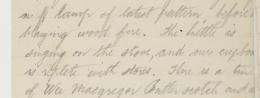 lamp of latest pattern before
blazing wood fire. The kettle is
singing on the stove, and our cupboard
is replete with stores. Here is a tin
of Wee Macgregor Butter scotch and